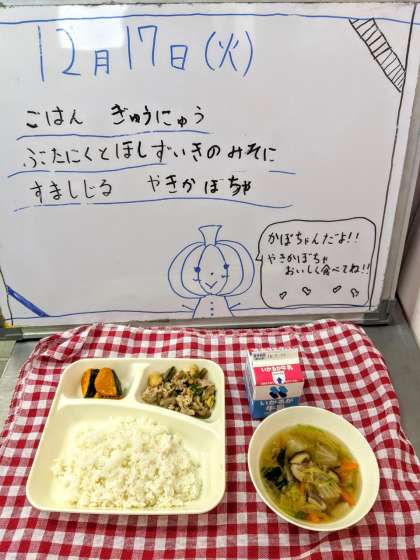 12月17日(火)
ごはん ぎゅうにゅう
ぶたにくとほしずいきのみそに
すましじる やきかぼちゃ
かぼちゃんだよ!!
やきかぼちゃ
おいしく食べてね!!
いかるが牛乳
いかるが
牛乳